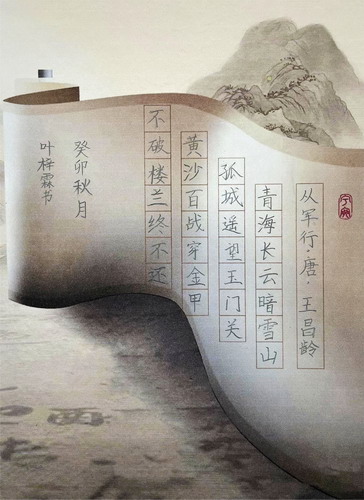 从军行·唐·王昌龄
青海长云暗雪山
孤城遥望玉门关
黄沙百战穿金甲
不破楼兰终不还
癸卯秋月
叶梓霖书